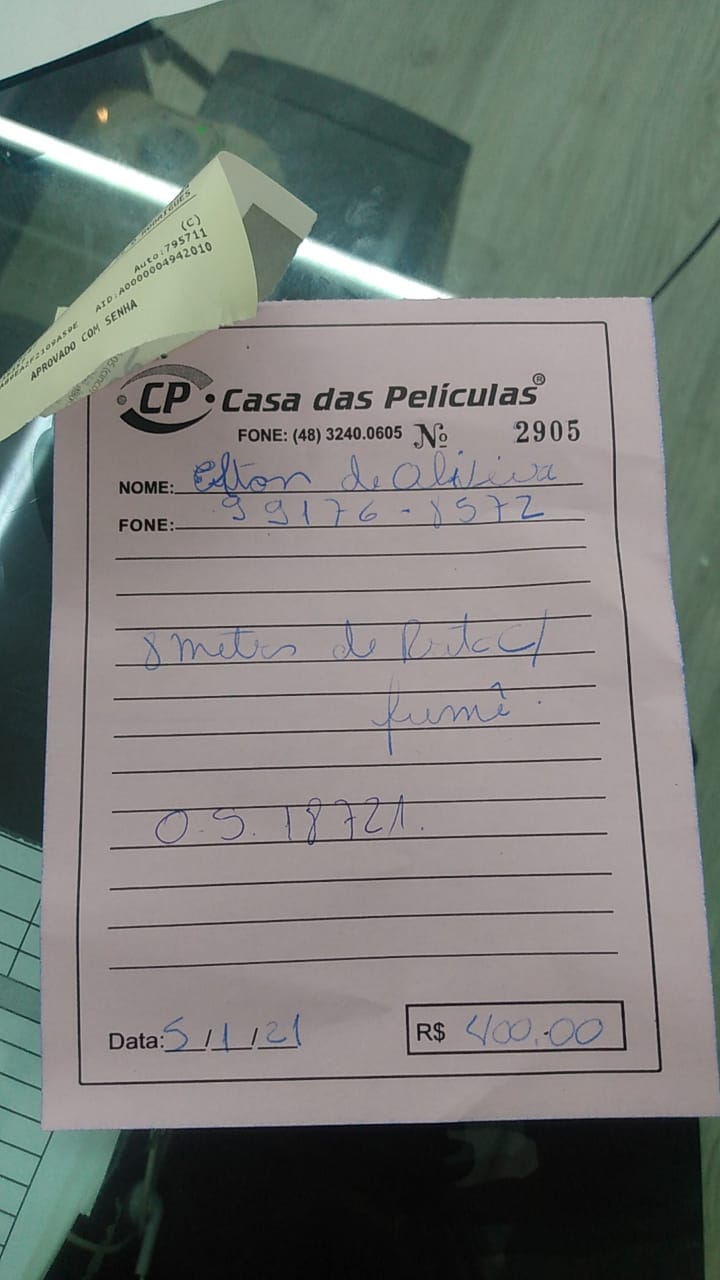 RODRIGUES
(C)
Auto:795711
AID:A0000004942010
APROVADO COM SENHA
CP Casa das Películas®
FONE: (48) 3240.0605 Nº 2905
NOME: de Oliveira
FONE: 99176-8572
8 metros de C/
fumê.
O.S. 18721.
Data: 5/1/21 R$ 400,00